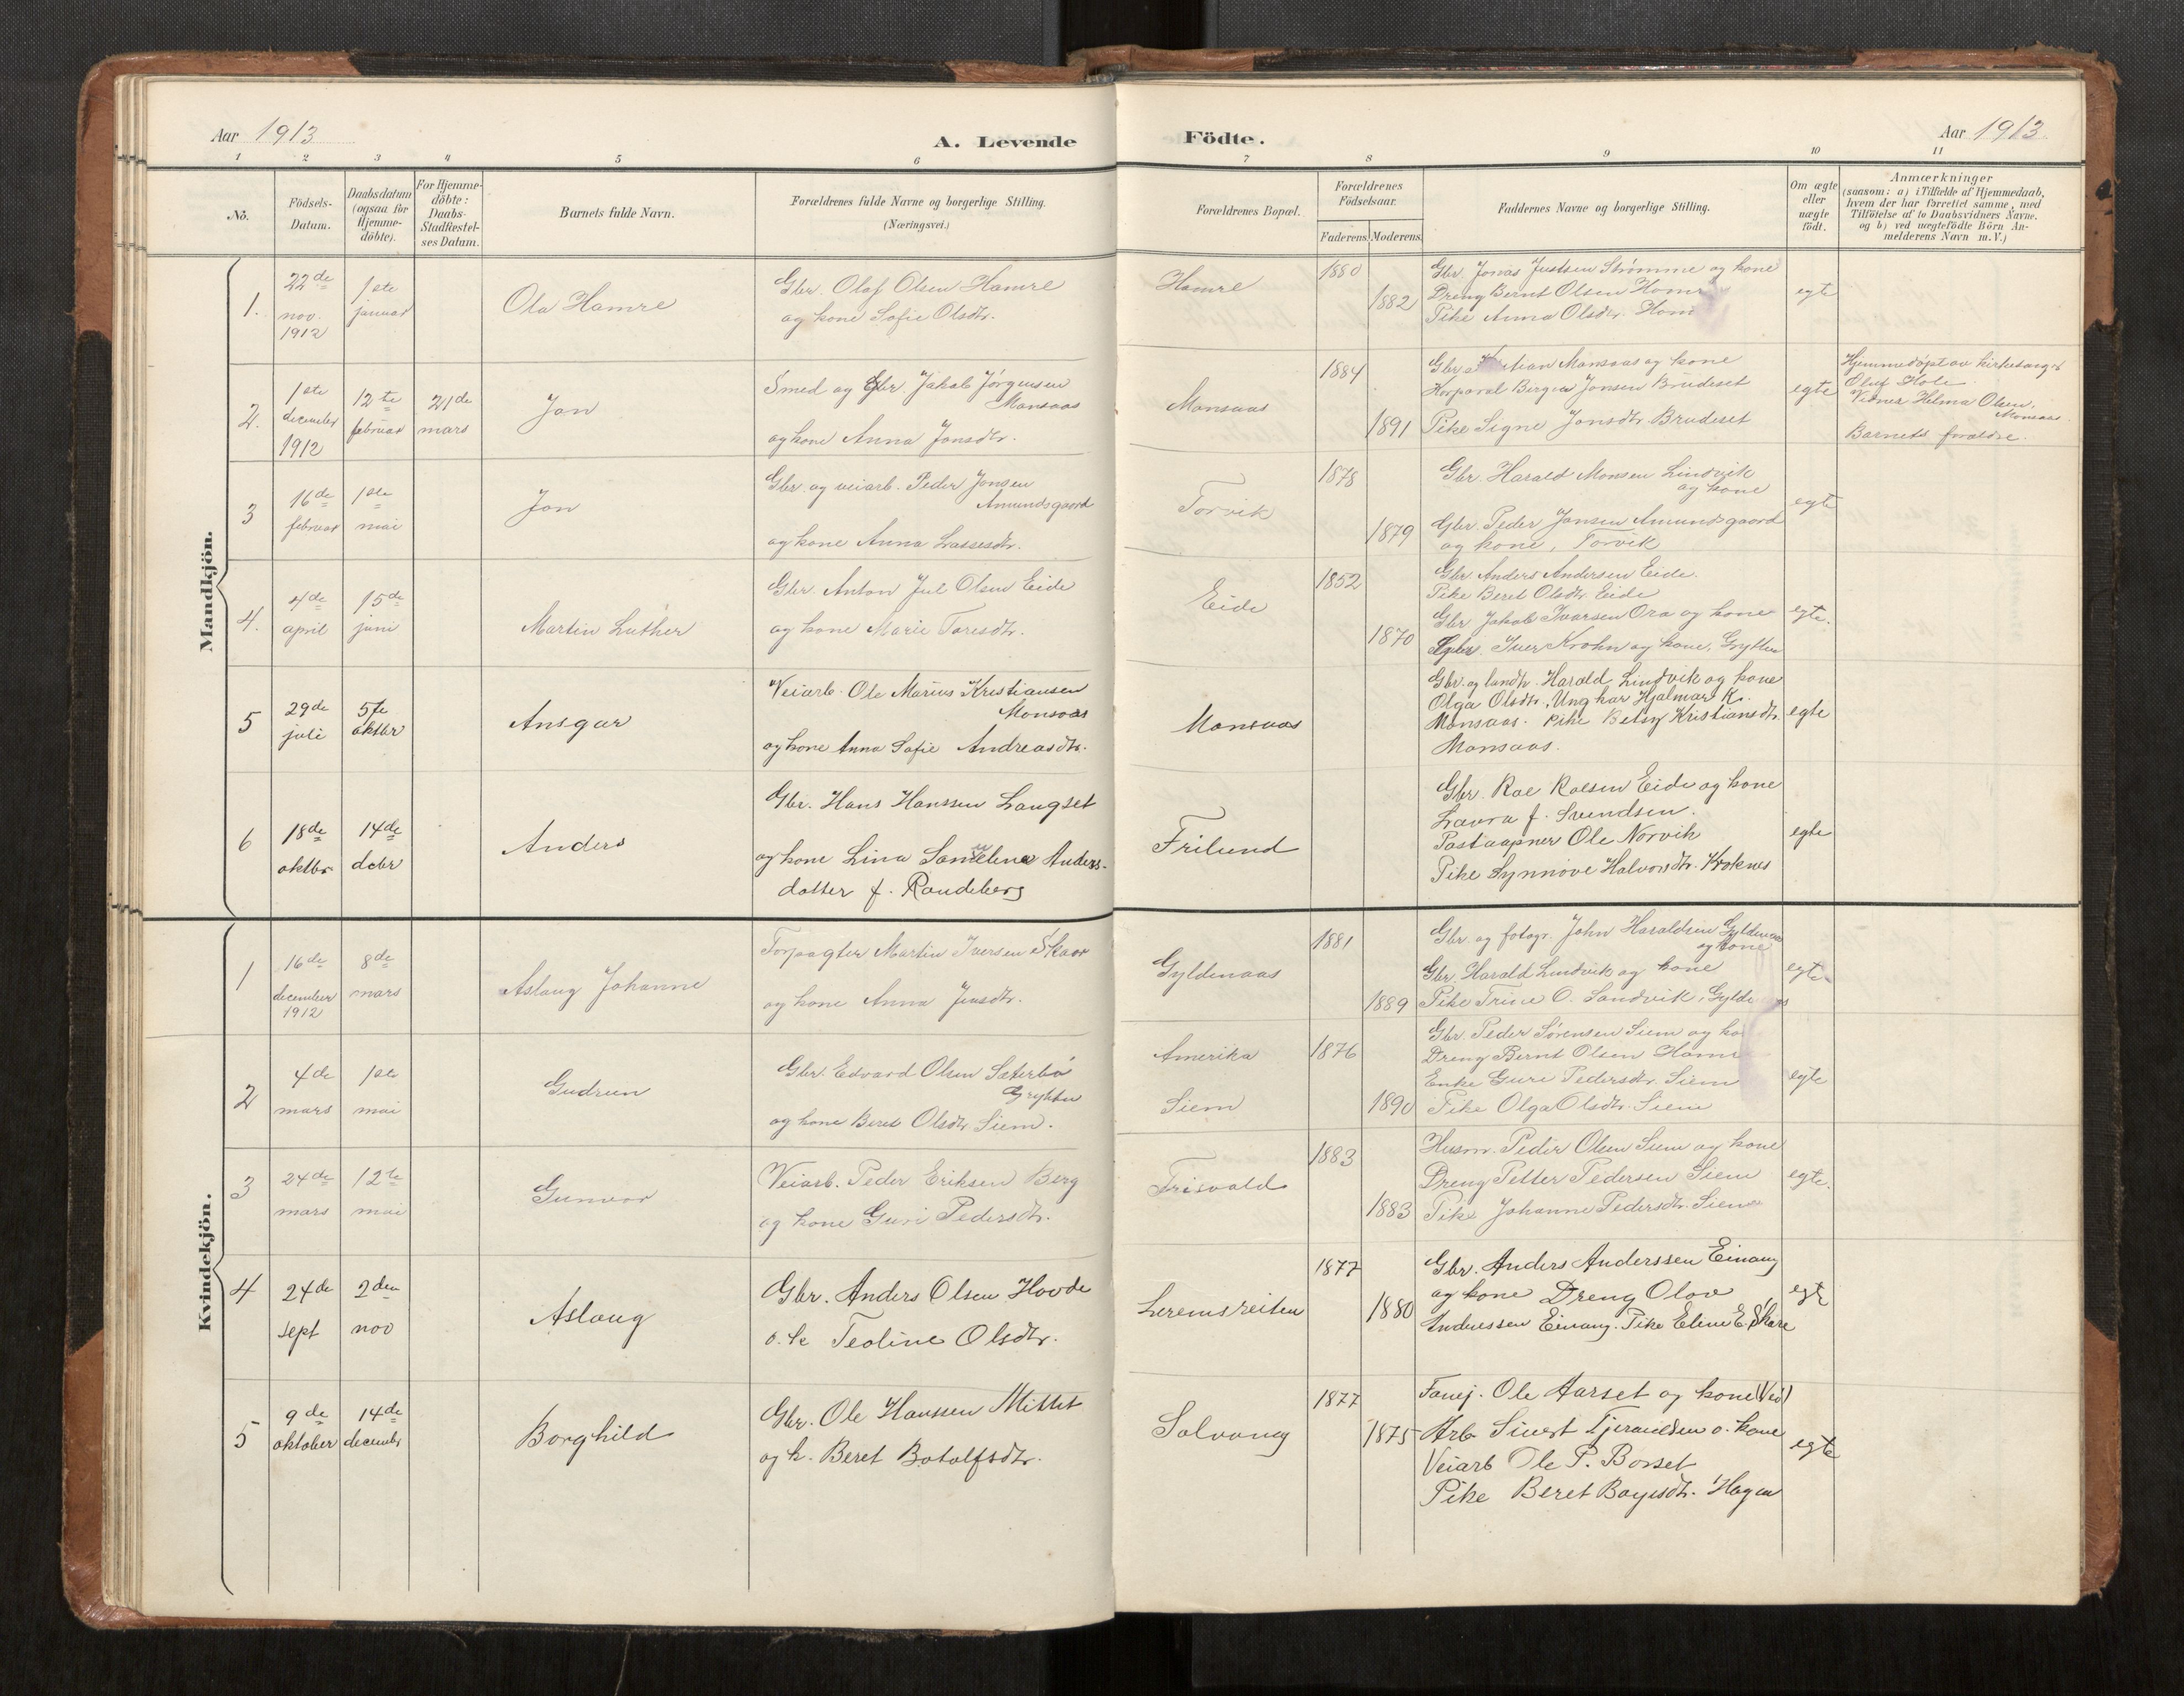 Aar 1913
A. Levende Födte.
Aar 1913
1 2 3 4 5 6 7 8 9 10 11
No.
Födsels-
Datum.
Daabsdatum
(ogsaa for
Hjemme-
döbte).
For Hjemme-
döbte:
Daabs-
Stadfæstel-
ses Datum.
Barnets fulde Navn.
Forældrenes fulde Navne og borgerlige Stilling.
(Næringsvei.)
Forældrenes Bopæl.
Forældrenes
Födselsaar.
Faderens. Moderens.
Faddernes Navne og borgerlige Stilling.
Om ægte
eller
uægte
födt.
Anmærkninger
(saasom: a) i Tilfælde af Hjemmedaab,
hvem der har forrettet samme, med
Tilföielse af to Daabsvidners Navne.
og b) ved uægtefödte Börn An-
melderens Navn m.V.)
Mandkjön.
1.
22de
nov.
1912
1ste
januar
Ola Hamre
Gbr. Olaf Olsen Hamre
og kone Sofie Olsdtr.
Hamre
1880
1882
Gbr. Jonas Justsen Strømme og kone
Dreng Bernt Olsen Hamre
Pike Anna Olsdtr. Ham
egte
2.
1ste
december
1912
12te
februar
21de
mars
Jon
Smed og Gbr Jakob Jørgensen
Monsaas
og kone Anna Jonsdtr.
Monsaas
1884
1891
Gbr. Kristian Monsaas og kone
Korporal Birger Jonsen Brudeset
Pike Signe Jonsdtr. Brudeset
egte
Hjemmedøpt av kirkesanger
Oluf Hole.
Vidner Helma Olsen,
Monsaas.
Barnets forældre.
3
16de
februar
1ste
mai
Jon
Gbr. og veiarb. Peder Jonsen
Amundsgaard
og kone Anna Lassesdtr.
Torvik
1878
1879
Gbr. Harald Monsen Lindvik
og kone
Gbr. Peder Jansen Amundsgaard
og kone, Torvik
egte
4.
4de
april
15de
juni
Martin Luther
Gbr. Anton Jul Olsen Eide
og kone Marie Toresdtr.
Eide
1852
1870
Gbr. Anders Andersen Eide.
Pike Beret Olsdtr. Eide
Gbr Jakob Ivarsen Ora og kone
Gbr. Iver Krohn og kone, Grytten
egte.
5
29de
juli
5te
oktbr
Ansgar
Veiarb. Ole Marius Kristiansen
Monsaas
og kone Anna Sofie Andreasdtr.
Monsaas
Gbr. og landh. Harald Lindvik og kone
Olga Olsdtr. Ungkar Hjalmar K.
Monsaas. Pike Betsy Kristiansdtr.
Monsaas.
egte
6
18de
oktbr
14de
debr
Anders
Gbr. Hans Hanssen Langset
og kone Lina Anders-
datter f. Randeberg
Frilund
Gbr. Roe Roesen Eide og kone
Laura f. Svendsen.
Postaapner Ole Norvik
Pike Synnöve Halvorsdtr. Kroknes
egte
Kvindekjön.
1
16de
december
1912
8de
mars
Aslaug Johanne
Forpagter Martin Iversen Skaar
og kone Anna Jensdtr.
Gyldenaas
1881
1889
Gbr. og fotogr. John Haraldsen Gyldenaas
og kone
Gbr. Harald Lindvik og kone
Pike Trine O. Sandvik, Gyldenaas
egte
2
4de
mars
1ste
mai
Gudrun
Gbr. Edvard Olsen Sæterbö
Grytten
og kone Beret Olsdtr Siem.
Amerika
Siem
1876
1890
Gbr. Peder Sørensen Siem og ko
Dreng Bernt Olsen Hamre
Enke Guri Pedersdtr. Siem
Pike Olga Olsdtr. Siem
egte
3
24de
mars
12te
mai
Gunvor
Veiarb. Peder Eriksen Berg
og kone Guri Pedersdtr.
Frisvold
1883
1883
Husm. Peder Olsen Siem og kone
Dreng Petter Pedersen Siem
Pike Johanne Pedersdtr. Siem
egte.
4
24de
sept
2den
nov
Aslaug
Gbr. Anders Olsen Hovde
o. k Teoline Olsdtr.
Leremsreiten
1877
1880
Gbr. Anders Anderssen Einang
og kone Dreng Olav
Anderssen Einang. Pike Eline E. Skare
egte
5
9de
oktober
14de
decembr
Borghild
Gbr. Ole Hanssen Mittet
og k. Beret Botolfsdtr.
Solvang
1877
1875
Ole Aarset og kone
Arb Sivert Tjeraldsen o. kone
Veiarb Ole P. Borset
Pike Beret Boyesdtr. Hagen
egte